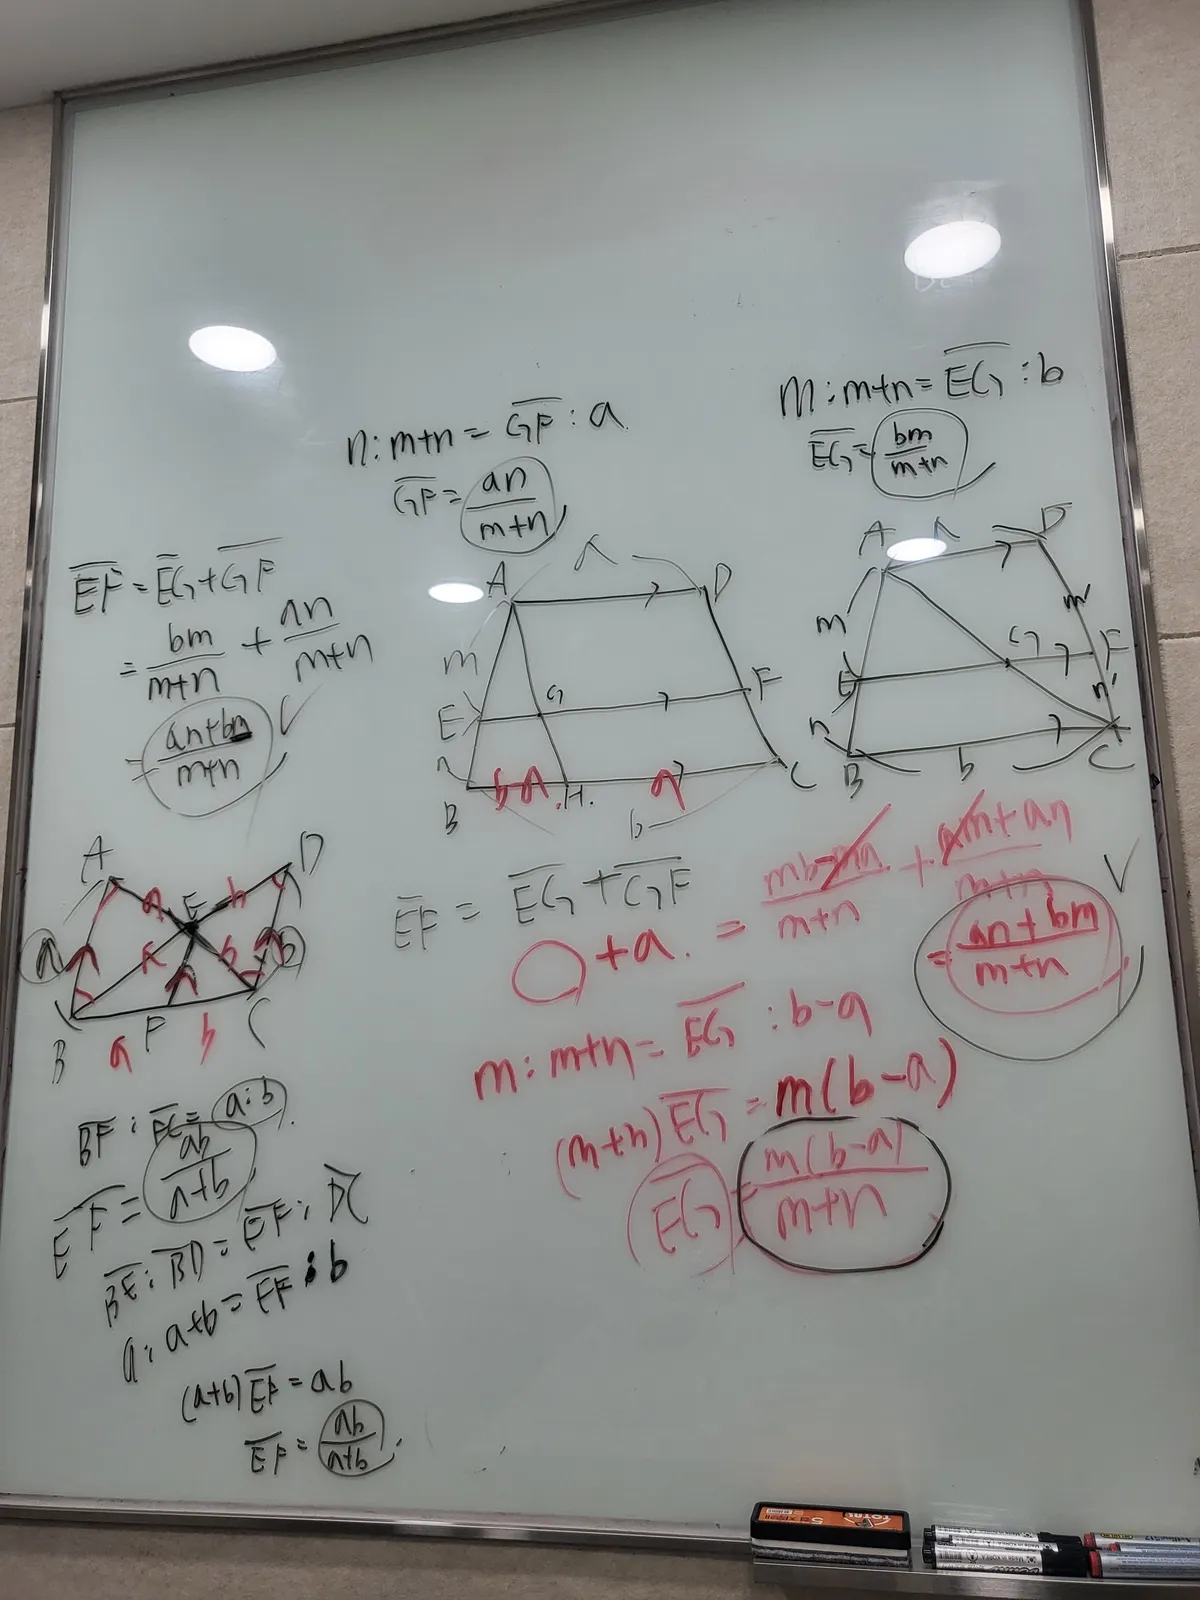 n : m+n = GF : a
GF = an/m+n
m : m+n = EG : b
EG = bm/m+n
EF = EG + GF
= bm/m+n + an/m+n
= an+bm/m+n
A a D
m
E G F
n b-a a
B H. C
b
A a D
m m'
E G F
n n'
B b C
A D
a E b
a a b b
B F C
a b
BF : FC = a : b
EF = ab/a+b
BE : BD = EF : DC
a : a+b = EF : b
(a+b) EF = ab
EF = ab/a+b
EF = EG + GF
+ a. = mb-ma/m+n + am+an/m+n
= an+bm/m+n
m : m+n = EG : b-a
(m+n) EG = m(b-a)
EG = m(b-a)/m+n
TOTAL